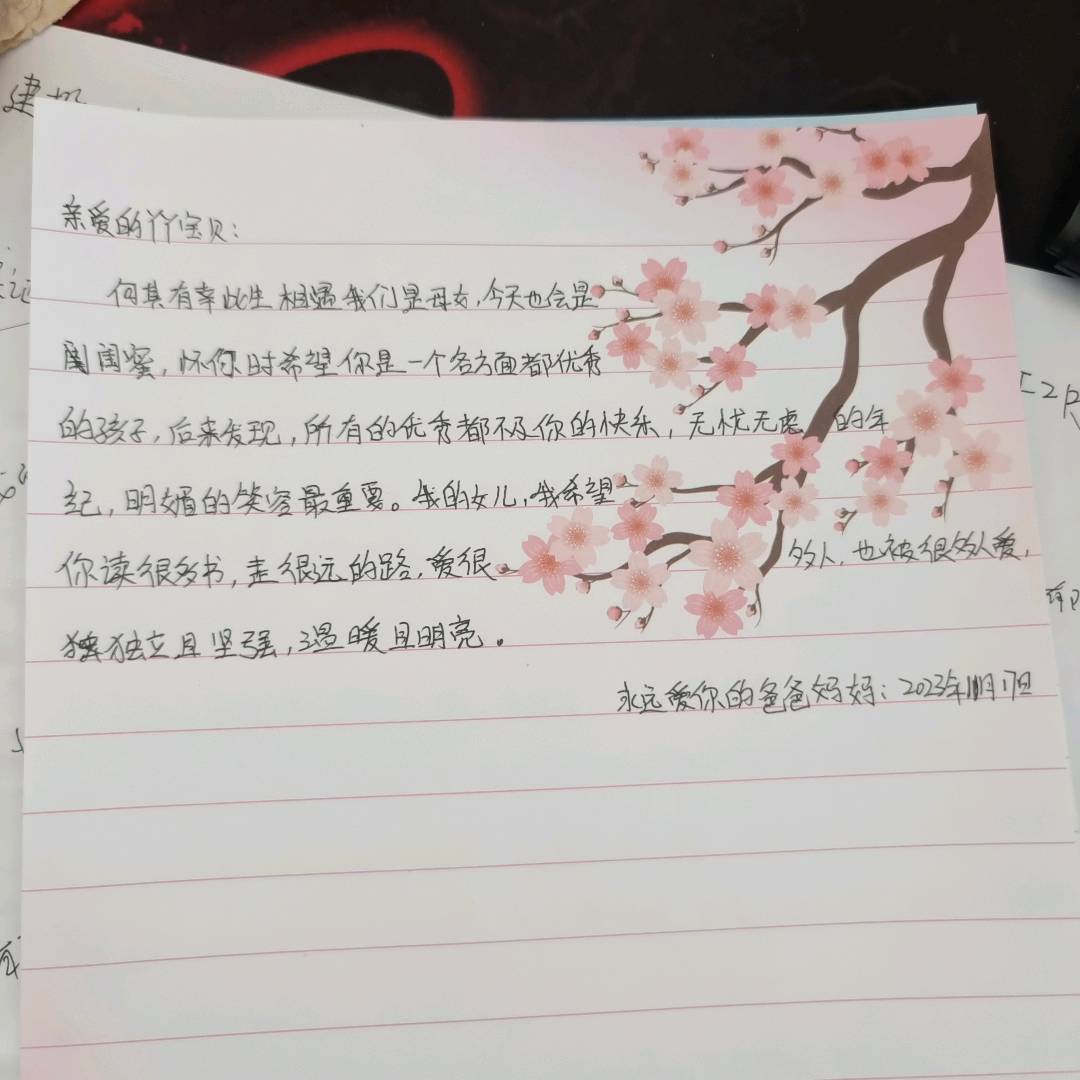 建设
亲爱的丫丫宝贝：
何其有幸此生相遇我们是母女，今天也会是
闺蜜，怀你时希望你是一个各方面都优秀
的孩子，后来发现，所有的优秀都不及你的快乐，无忧无虑的年
纪，明媚的笑容最重要。我的女儿，我希望
你读很多书，走很远的路，爱很多人，也被很多人爱，
独立且坚强，温暖且明亮。
永远爱你的爸爸妈妈：2023年11月17日